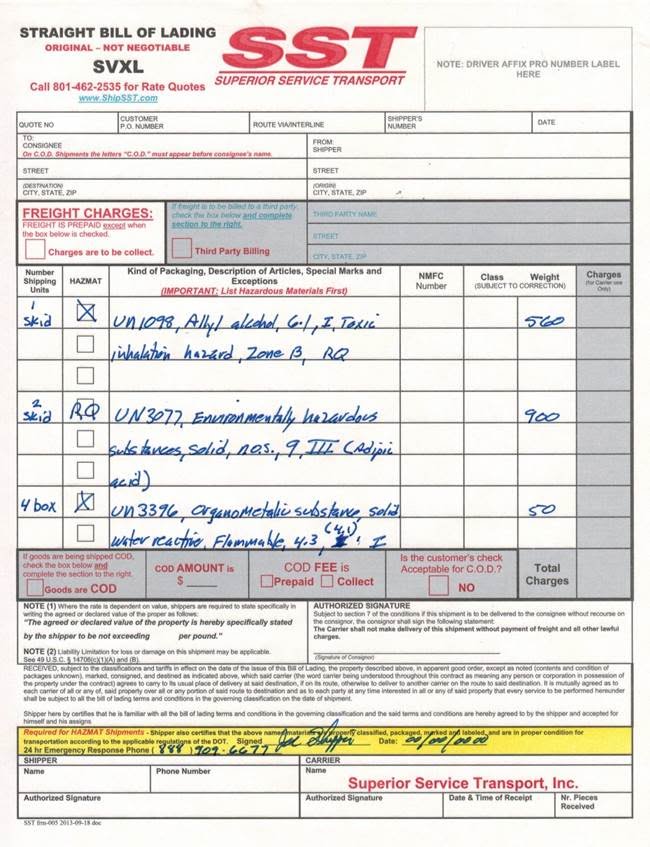 STRAIGHT BILL OF LADING
ORIGINAL – NOT NEGOTIABLE
SVXL
Call 801-462-2535 for Rate Quotes
www.ShipSST.com
SST
SUPERIOR SERVICE TRANSPORT
NOTE: DRIVER AFFIX PRO NUMBER LABEL
HERE
QUOTE NO
CUSTOMER
P.O. NUMBER
ROUTE VIA/INTERLINE
SHIPPER'S
NUMBER
DATE
TO:
CONSIGNEE
On C.O.D. Shipments the letters "C.O.D." must appear before consignee's name.
FROM:
SHIPPER
STREET
STREET
(DESTINATION)
CITY, STATE, ZIP
(ORIGIN)
CITY, STATE, ZIP
FREIGHT CHARGES:
FREIGHT IS PREPAID except when
the box below is checked.
Charges are to be collect.
If freight is to be billed to a third party,
check the box below and complete
section to the right.
Third Party Billing
THIRD PARTY NAME
STREET
CITY, STATE, ZIP
Number
Shipping
Units
HAZMAT
Kind of Packaging, Description of Articles, Special Marks and
Exceptions
(IMPORTANT: List Hazardous Materials First)
NMFC
Number
Class
Weight
(SUBJECT TO CORRECTION)
Charges
(for Carrier use
Only)
1
skid
X
UN1098, Allyl alcohol, 6.1, I, Toxic
560
inhalation hazard, Zone B, RQ
2
skid
RQ
UN3077, Environmentally hazardous
900
substances, solid, n.o.s., 9, III (Adipic
acid)
4 box
X
UN3396, Organometalic substance, solid
50
water reactive, Flammable, 4.3 (4.1) I
If goods are being shipped COD,
check the box below and
complete the section to the right.
Goods are COD
COD AMOUNT is
$ ____
COD FEE is
Prepaid
Collect
Is the customer's check
Acceptable for C.O.D.?
NO
Total
Charges
NOTE (1) Where the rate is dependent on value, shippers are required to state specifically in
writing the agreed or declared value of the proper as follows:
"The agreed or declared value of the property is hereby specifically stated
by the shipper to be not exceeding per pound."
NOTE (2) Liability Limitation for loss or damage on this shipment may be applicable.
See 49 U.S.C. § 14706(c)(1)(A) and (B).
AUTHORIZED SIGNATURE
Subject to section 7 of the conditions if this shipment is to be delivered to the consignee without recourse on
the consignor, the consignor shall sign the following statement:
The Carrier shall not make delivery of this shipment without payment of freight and all other lawful
charges.
(Signature of Consignor)
RECEIVED, subject to the classifications and tariffs in effect on the date of the issue of this Bill of Lading, the property described above, in apparent good order, except as noted (contents and condition of
packages unknown), marked, consigned, and destined as indicated above, which said carrier (the word carrier being understood throughout this contract as meaning any person or corporation in possession of
the property under the contract) agrees to carry to its usual place of delivery at said destination, if on its route, otherwise to deliver to another carrier on the route to said destination. It is mutually agreed as to
each carrier of all or any of, said property over all or any portion of said route to destination and as to each party at any time interested in all or any of said property that every service to be performed hereunder
shall be subject to all the bill of lading terms and conditions in the governing classification on the date of shipment.
Shipper here by certifies that he is familiar with all the bill of lading terms and conditions in the governing classification and the said terms and conditions are hereby agreed to by the shipper and accepted for
himself and his assigns
Required for HAZMAT Shipments - Shipper also certifies that the above named materials are properly classified, packaged, marked and labeled, and are in proper condition for
transportation according to the applicable regulations of the DOT. Signed Joe Shipper Date: 00/00/0000
24 hr Emergency Response Phone (888) 909-6677
SHIPPER
Name
Phone Number
Authorized Signature
CARRIER
Name
Superior Service Transport, Inc.
Authorized Signature
Date & Time of Receipt
Nr. Pieces
Received
SST frm-005 2013-09-18 doc